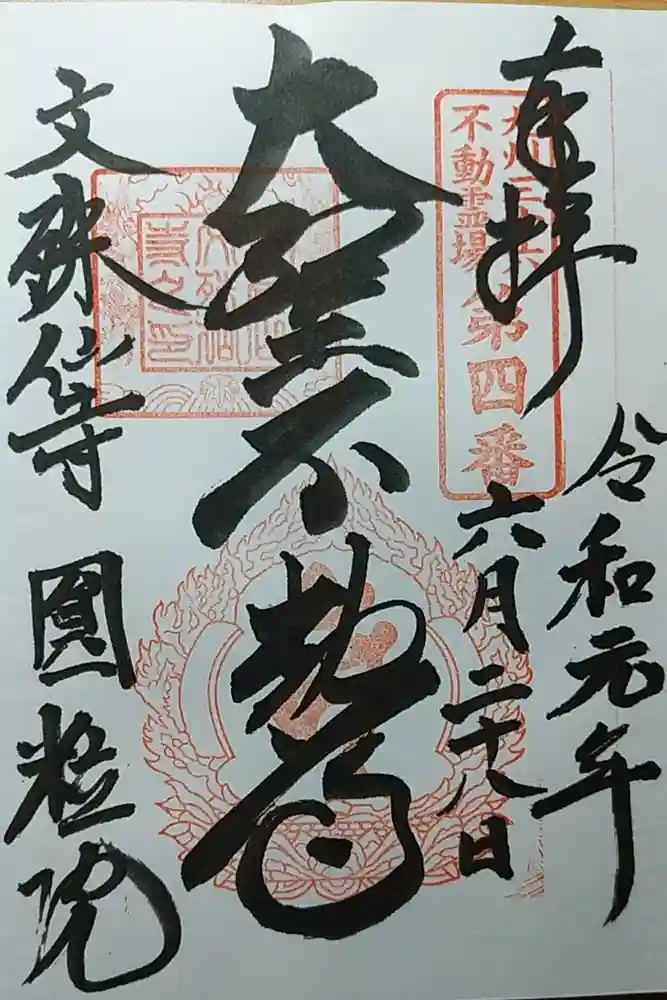 奉拝
九州三十六
不動霊場
第四番
令和元年
六月二十八日
大聖不動尊
文殊仙寺 圓 院